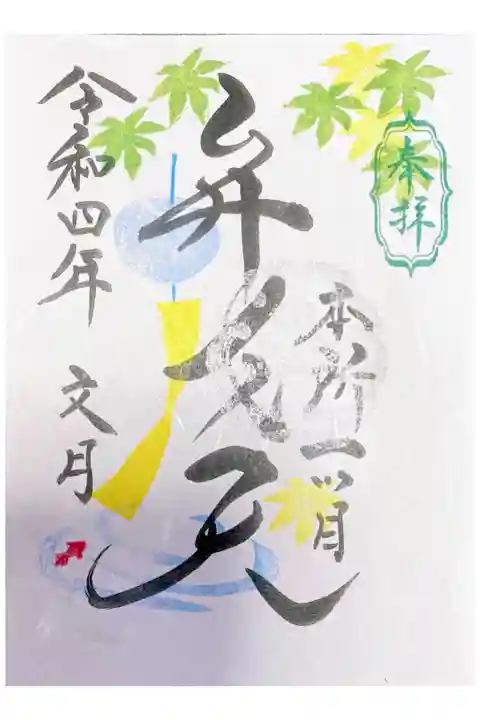 奉拝
本所一ツ目
弁財天
令和四年 文月